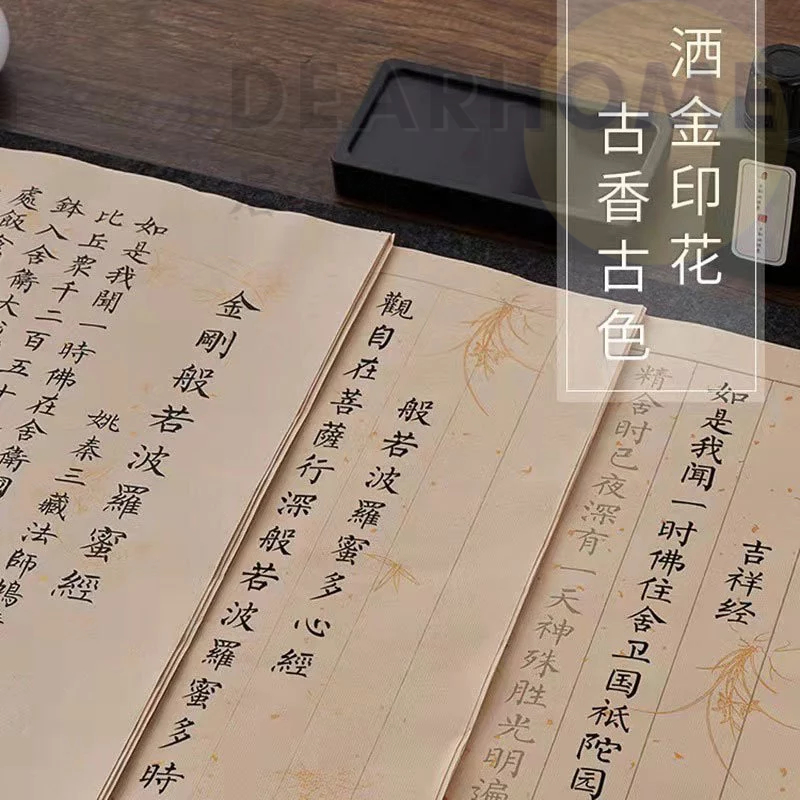 DEARHOME
洒金印花
古香古色
吉祥经
如是我闻一时佛住舍卫国祗陀园
精舍时已夜深有一天神殊胜光明遍
般若波羅蜜多心經
觀自在菩薩行深般若波羅蜜多時
金剛般若波羅蜜經
姚秦三藏法師鳩
如是我聞一時佛在舍衛國
比丘衆千二百五十
鉢入舍衛大城
處飯食